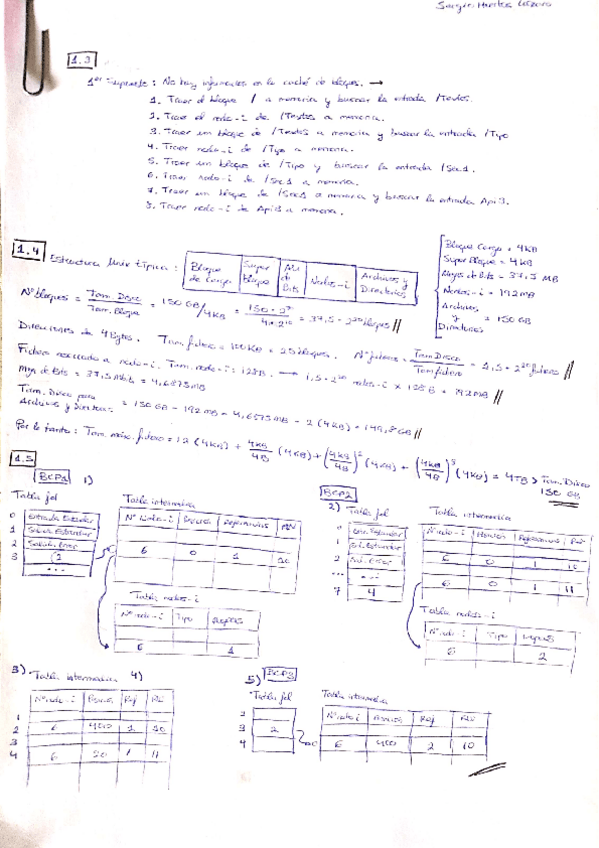 Sergio Huertas
1.3
1er Supuesto: No hay informacion en la caché de bloques. →
1. Traer el bloque / a memoria y buscar la entrada /Textos.
2. Traer el nodo-i de /Textos a memoria.
3. Traer un bloque de /Textos a memoria y buscar la entrada /Tipo
4. Traer nodo-i de /Tipo a memoria.
5. Traer un bloque de /Tipo y buscar la entrada /Sec1.
6. Traer nodo-i de /Sec1 a memoria.
7. Traer un bloque de /Sec1 a memoria y buscar la entrada Api3.
8. Traer nodo-i de Api3 a memoria.
1.4 Estructura Unix típica:
Bloque de Carga | Super bloque | Ma de bits | Nodos-i | Archivos y Directorios
Bloque Carga = 4KB
Super Bloque = 4KB
Mapa de Bits = 37,5 MB
Nodos-i = 192MB
Archivos y Directorios = 150 GB
Nº bloques = Tam. Disco / Tam. Bloque = 150 GB / 4KB = 150 · 2 / 4 · 2^10 = 37,5 · 2^20 bloques //
Direcciones de 4 Bytes. Tam. fichero = 100KB = 25 bloques. Nº ficheros = Tam Disco / Tam fichero = 1,5 · 2^20 ficheros //
Fichero asociado a nodo-i. Tam. nodo-i: 128B. → 1,5 · 2^20 nodos-i x 128 B = 192MB //
Mapa de Bits = 37,5 Mbits = 4,6875MB
Tam. Disco para Archivos y Directorios = 150 GB - 192 MB - 4,6875MB - 2 (4KB) = 149,8GB //
Por lo tanto: Tam. máx. fichero = 12 (4KB) + 4KB/4B (4KB) + (4KB/4B)^2 (4KB) + (4KB/4B)^3 (4KB) = 4TB > Tam. Disco
150 GB
1.5
BCP1 1)
Tabla fd
0 Entrada Estandar
1 Salida Estandar
2 Salida Error
3 1
...
Tabla intermedia
Nº nodo-i | Posicion | Referencias | RW
6 | 0 | 1 | 10
Tabla nodos-i
Nº nodo-i | Tipo | nopens
6 | 1
BCP2
2) Tabla fd
0 Ent. Estandar
1 Sal. Estandar
2 Sal. Error
... ...
7 4
Tabla intermedia
Nº nodo-i | Posicion | Referencias | RW
6 | 0 | 1 | 10
6 | 0 | 1 | 11
Tabla nodos-i
Nº nodo-i | Tipo | nopens
6 | 2
3) Tabla intermedia 4)
Nº nodo-i | Posicion | Ref | RW
1
2 6 | 400 | 1 | 10
3
4 6 | 20 | 1 | 11
5) BCP3
Tabla fd
2
3 2
4
Tabla intermedia
Nº nodo-i | Posicion | Ref | RW
6 | 400 | 2 | 10